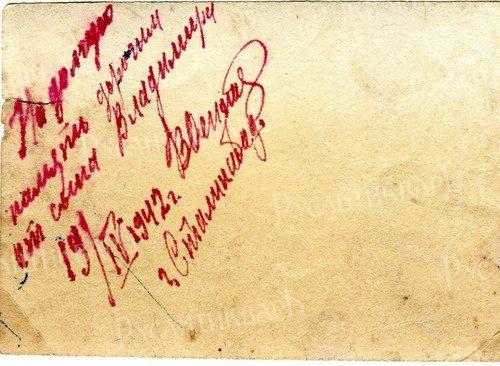 На долгую
память дорогим
от сына Владимира
19/IV 1942 г.
г. Сталинабад.
РусАнтикваръ
РусАнтикваръ